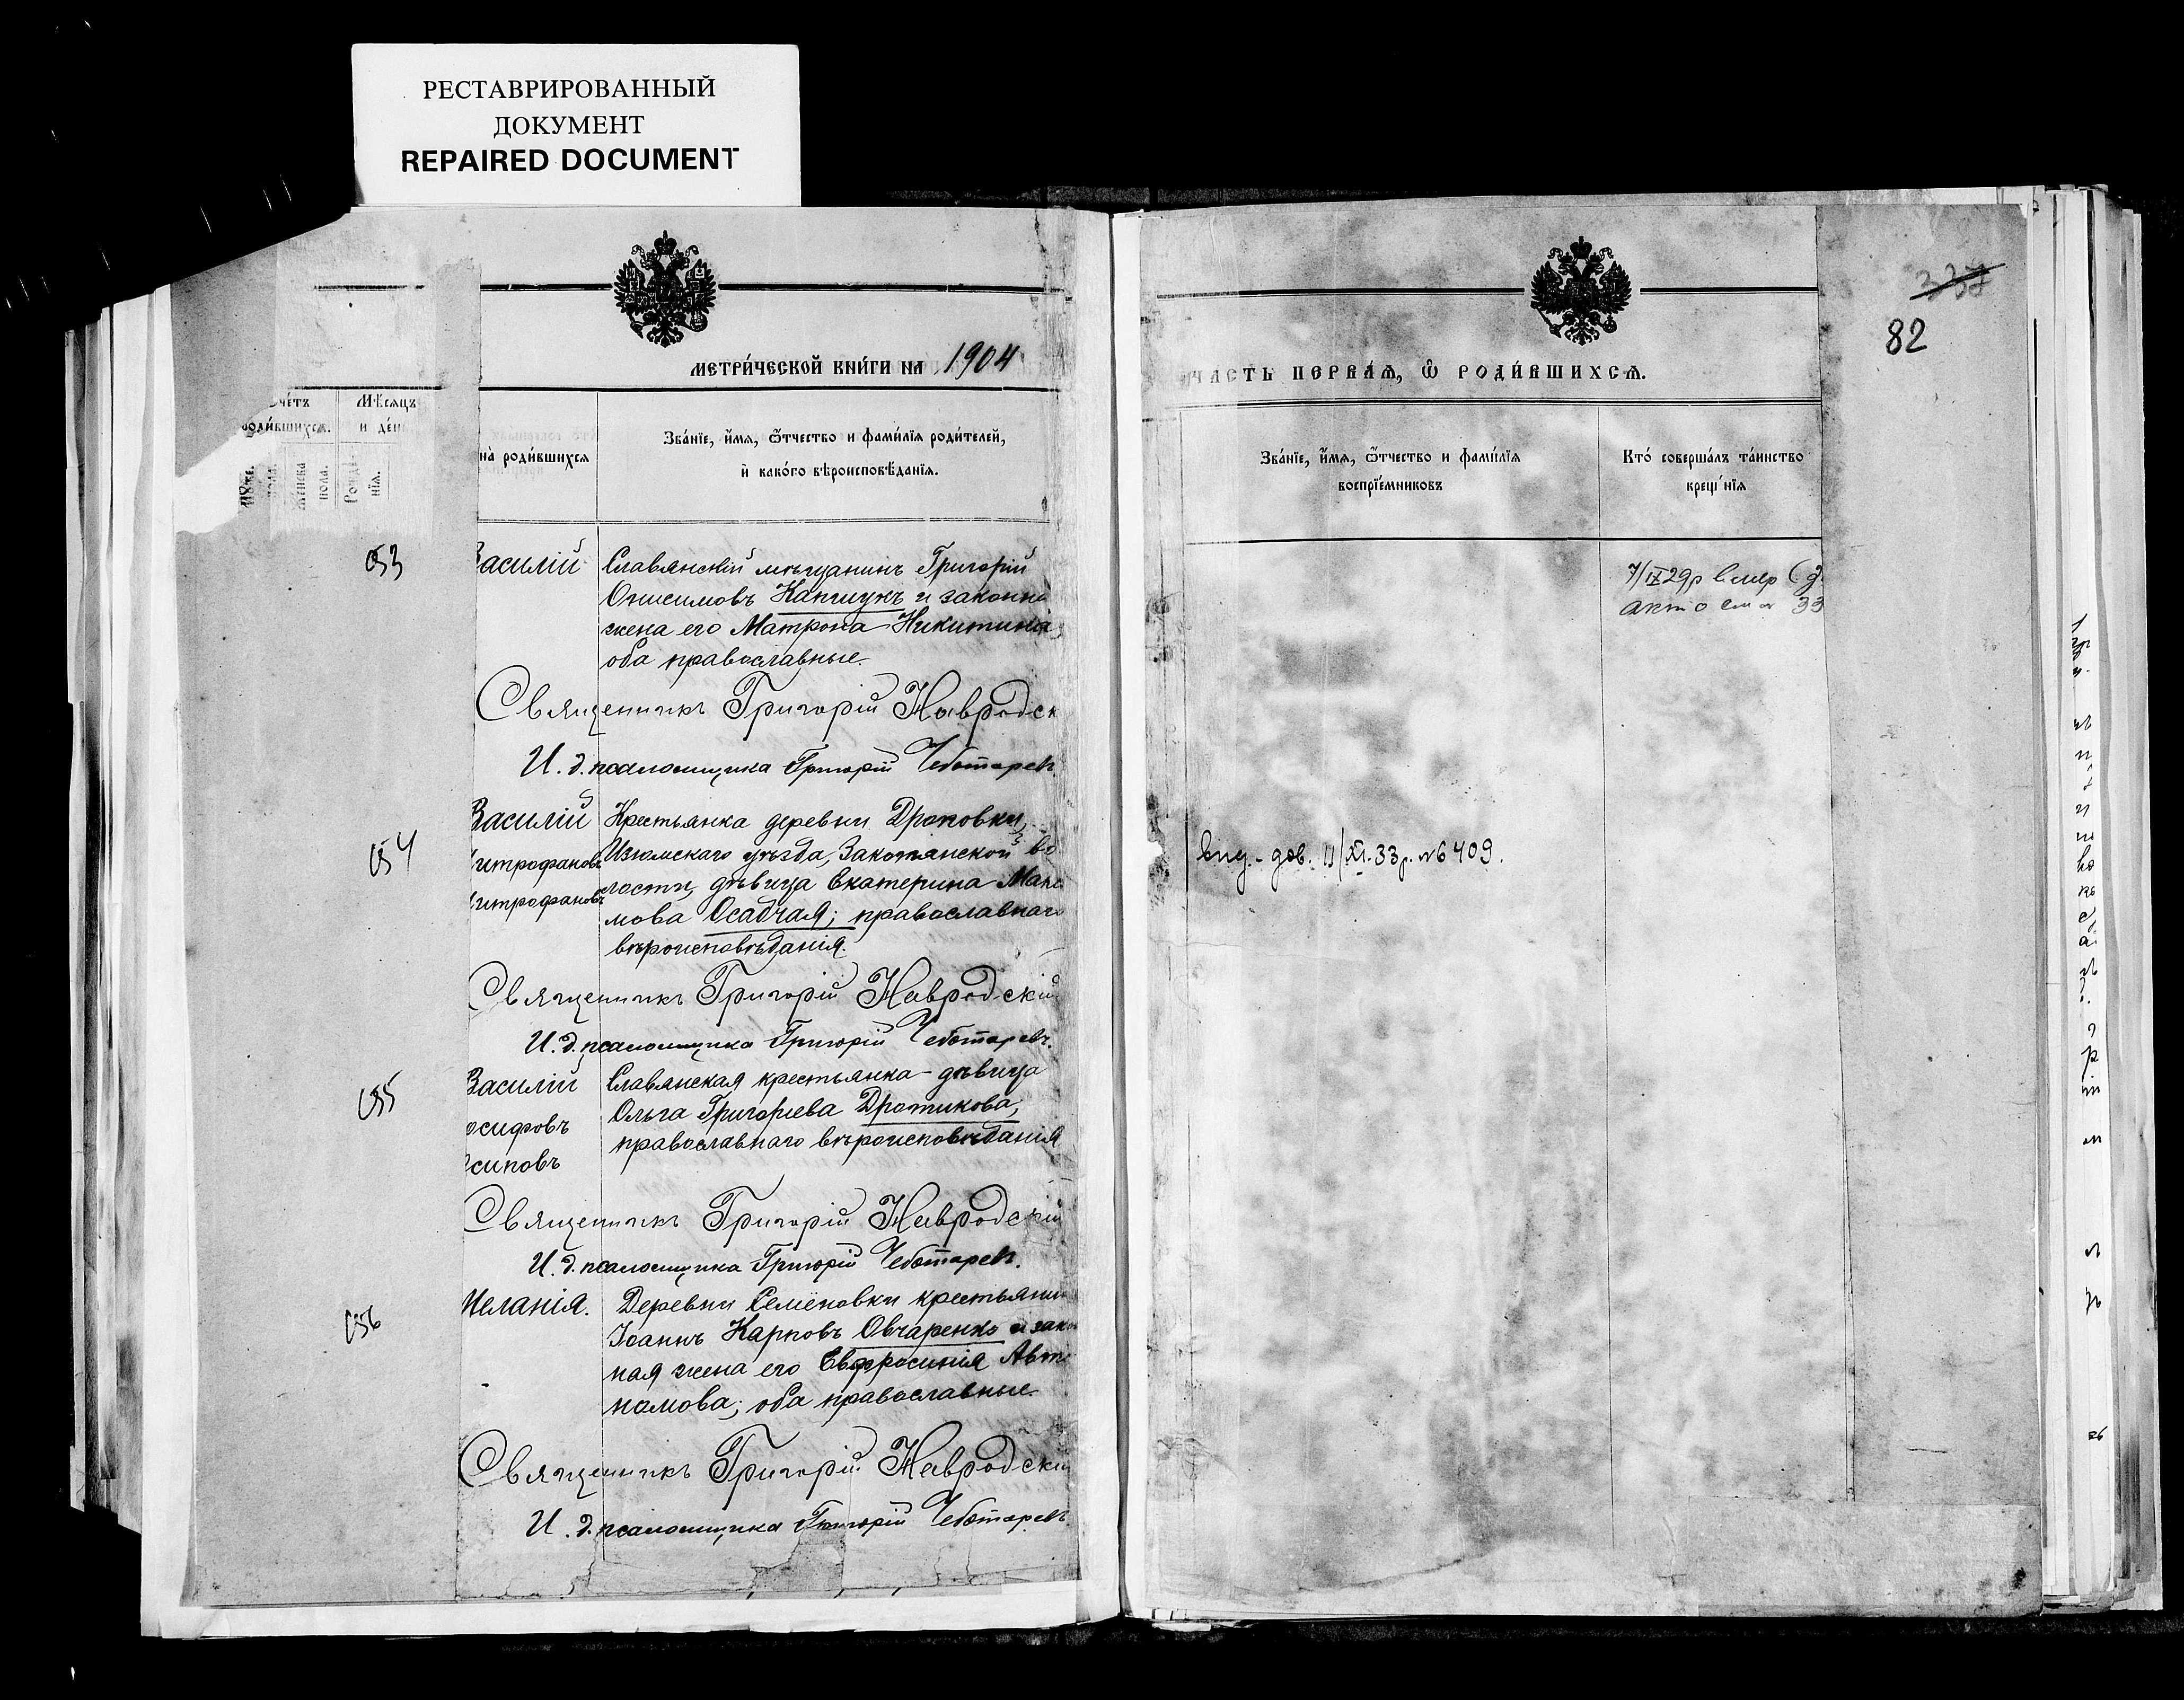 РЕСТАВРИРОВАННЫЙ
ДОКУМЕНТ
REPAIRED DOCUMENT
МЕТРИ́ЧЕСКОЙ КНИ́ГИ НА 1904
счéтъ
роди́вшихсѧ.
Мѣ́сѧцъ
и де́н
Муже.
пола.
Же́нска
пола.
Рожде́-
нїѧ.
на̀ роди́вшихсѧ
Зва́нїе, и́мѧ, ѿ́тчество и фами́лїѧ роди́телей,
и҆ како́го вѣроисповѣ́данїѧ.
053
Василій
Славянскій мѣщанинъ Григорій
Онисимовъ Капшукъ и законна
жена его Матрона Никитина,
оба православные.
Священникъ Григорій Навродск
И. д. псаломщика Григорій Чеботаревъ.
054
Василій
итрофановъ
итрофановъ
Крестьянка деревни Дроновки,
Изюмскаго уѣзда, Закотянской во
лости, дѣвица Екатерина Макс
мова Осадчая; православнаго
вѣроисповѣданія.
Священникъ Григорій Навродскій
И. д. псаломщика Григорій Чеботаревъ.
055
Василій
осифовъ
сиповъ
Славянская крестьянка дѣвица
Ольга Григорьева Дротикова,
православнаго вѣроисповѣданія
Священникъ Григорій Навродскій
И. д. псаломщика Григорій Чеботаревъ.
056
Меланія.
Деревни Семёновки крестьянин
Іоаннъ Карповъ Овчаренко и зако
ная жена его Евфросинія Авто
номова; оба православные.
Священникъ Григорій Навродскі
И. д. псаломщика Григорій Чеботаревъ
ЧАСТЬ ПЕРВАѦ, Ѡ РОДИ́ВШИХСѦ.
337
82
Зва́нїе, и́мѧ, ѿ́тчество и фами́лїѧ
воспрїе́мниковъ
Кто́ соверша́лъ та́инство
крещ нїѧ
7/IX 29р вмер
акт о см 33
вид.- дов. 11/XI-33р. №6409.